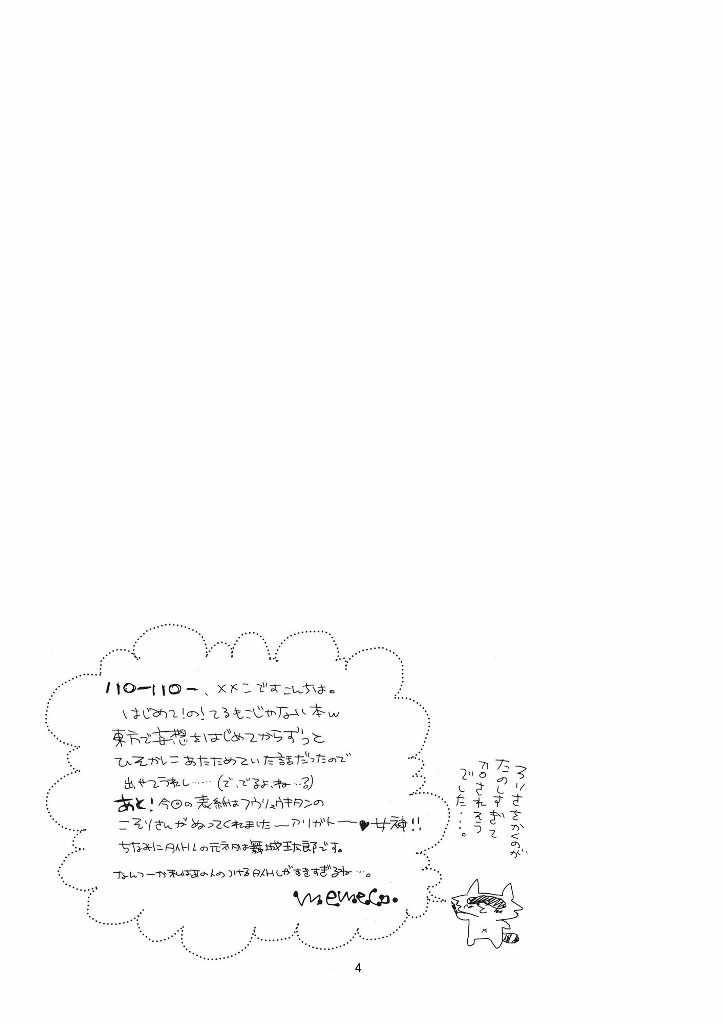 ハローハロー、××こですこんちは。
はじめて!の!てるもこじゃない本w
東方で妄想をはじめてからずっと
ひそかにあたためていた話だったので
出せてうれし……(で、でるよ、ね…?)
あと!今回の表紙はフウリュウキタンの
こそりさんがぬってくれましたーアリガトー♥女神!!
ちなみにタイトルの元ネタは舞城王太郎です。
なんつーか私はあの人のつけるタイトルがすきすぎるね…。
memeco.
ろりさをかくのが
たのしすぎて
でした…。
4